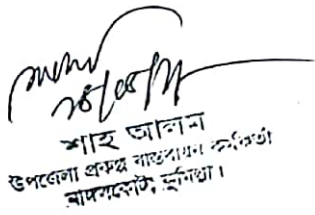 শাহ আলম
উপজেলা প্রকল্প বাস্তবায়ন কর্মকর্তা
নাঙ্গলকোট, কুমিল্লা।